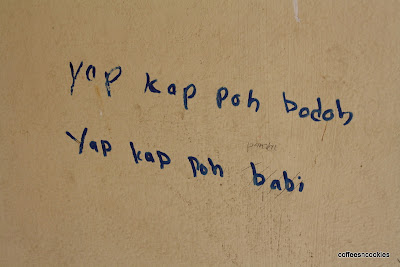 yap kap poh bodoh
Yap kap poh babi
coffeesncookies